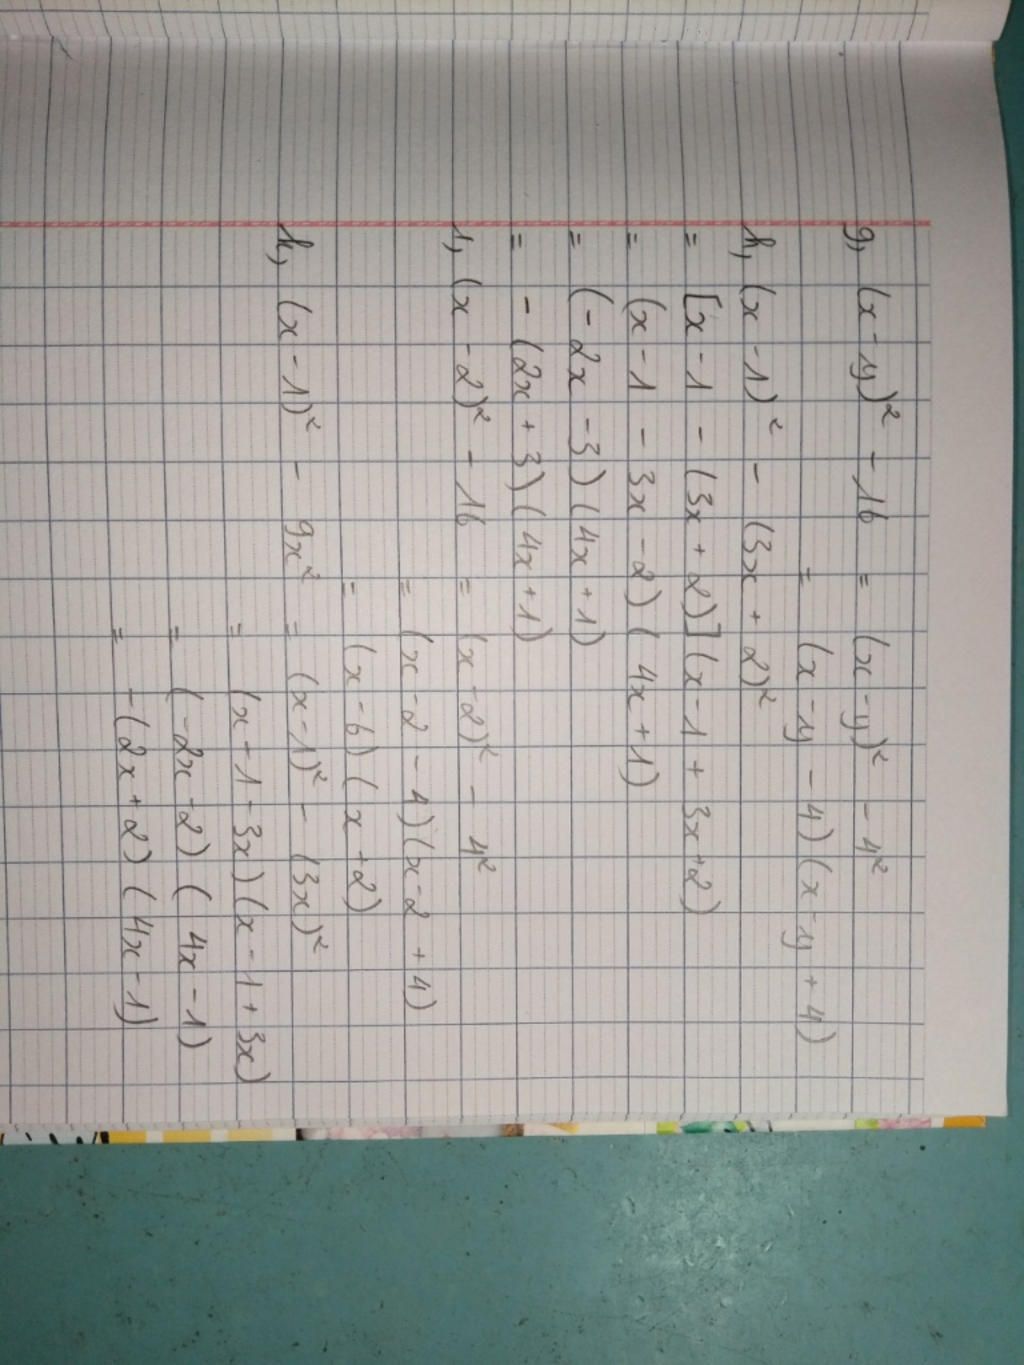 g, (x-y)² - 16 = (x-y)² - 4²
= (x-y - 4)(x-y + 4)
h, (x-1)² - (3x + 2)²
= [x-1 - (3x + 2)](x-1 + 3x+2)
= (x-1 - 3x - 2)(4x+1)
= (-2x -3)(4x+1)
= - (2x+3)(4x+1)
1, (x-2)² - 16 = (x-2)² - 4²
= (x-2-4)(x-2+4)
= (x-6)(x+2)
k, (x-1)² - 9x² = (x-1)² - (3x)²
= (x-1-3x)(x-1+3x)
= (-2x-2)(4x-1)
= -(2x+2)(4x-1)